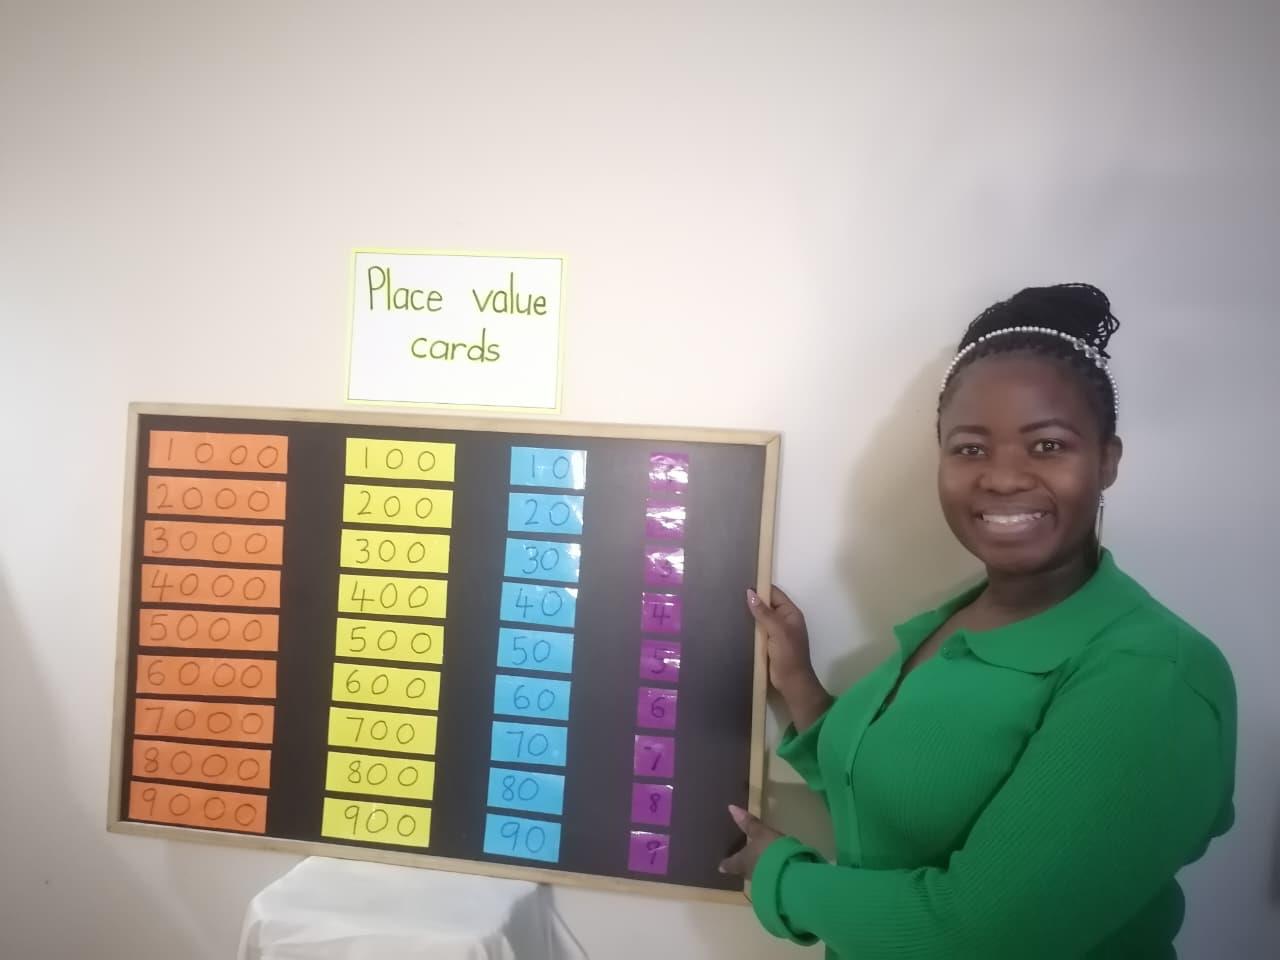 Place value
cards
1000 100 10
2000 200 20
3000 300 30 3
4000 400 40 4
5000 500 50 5
6000 600 60 6
7000 700 70 7
8000 800 80 8
9000 900 90 9